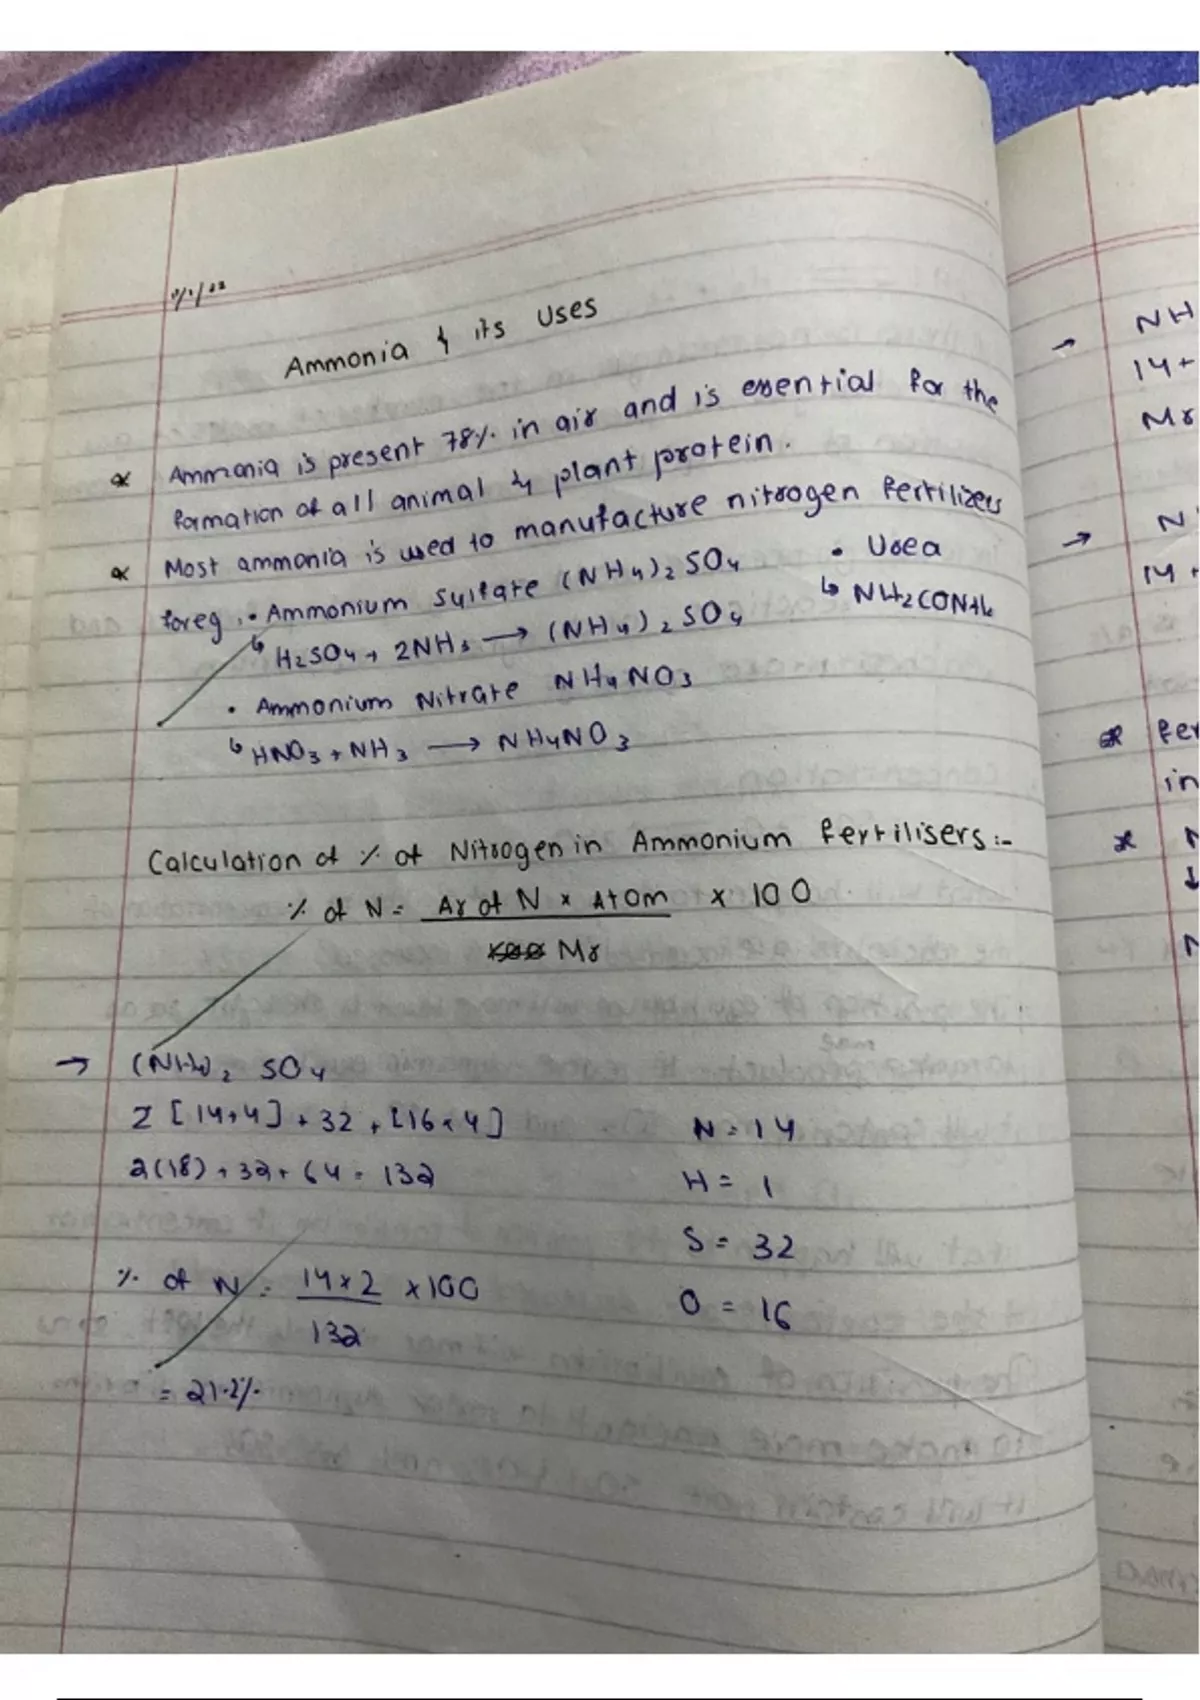 Ammonia & its Uses
Ammonia is present 78% in air and is essential for the
formation of all animal & plant protein.
Most ammonia is used to manufacture nitrogen fertilizers
for eg. • Ammonium sulfate (NH4)2 SO4 • Urea
↳ H2SO4 + 2NH3 → (NH4)2 SO4 ↳ NH2CONH2
• Ammonium Nitrate NH4NO3
↳ HNO3 + NH3 → NH4NO3
Calculation of % of Nitrogen in Ammonium fertilisers :-
% of N = Ar of N × Atom × 100
Mr
→ (NH4)2 SO4
2 [14+4] + 32 + [16×4] N = 14
2(18) + 32 + 64 = 132 H = 1
S = 32
% of N = 14×2 ×100 O = 16
132
= 21.2%
NH
14+
Mr
→ N
14 +
fer
in